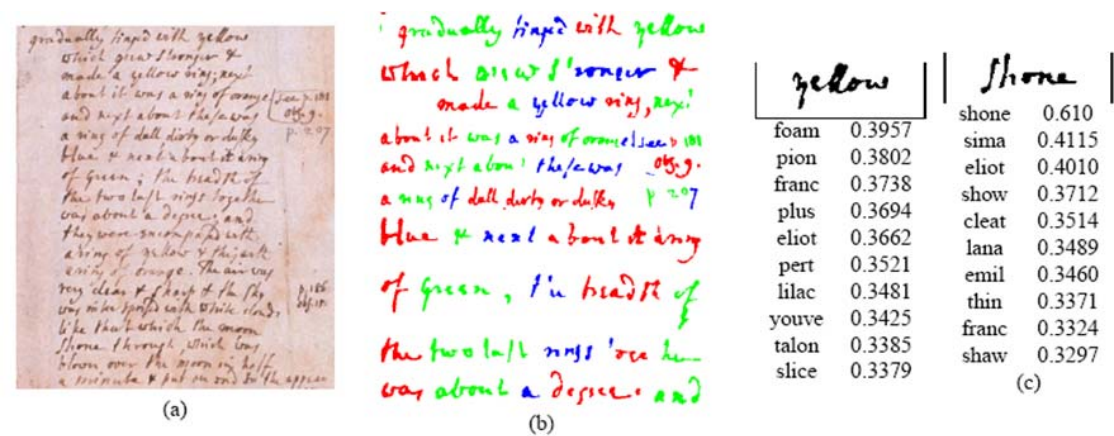 gradually tinged with yellow
which grew stronger &
made a yellow ring; next
about it was a ring of orange
see p. 181
and next about these was
obs. 9.
a ring of dull dirty or dusky
p. 207
blue & next about it a ring
of Green; the breadth of
the two last rings together
was about a degree; and
they were encompassed with
a ring of yellow & this with
a ring of orange. The air was
very clear & sharp & the sky
p. 186
was with white clouds
like that which the moon
shone through which was
blown over the moon in half
a minute & put an end to the appear
(a)
gradually tinged with yellow
which grew stronger &
made a yellow ring, next
about it was a ring of orange see p 181
and next about these was obs. 9.
a ring of dull dirty or dusky p 207
blue & next about it a ring
of Green, the breadth of
the two last rings toge her
was about a degree. and
(b)
yellow
foam 0.3957
pion 0.3802
franc 0.3738
plus 0.3694
eliot 0.3662
pert 0.3521
lilac 0.3481
youve 0.3425
talon 0.3385
slice 0.3379
shone
shone 0.610
sima 0.4115
eliot 0.4010
show 0.3712
cleat 0.3514
lana 0.3489
emil 0.3460
thin 0.3371
franc 0.3324
shaw 0.3297
(c)